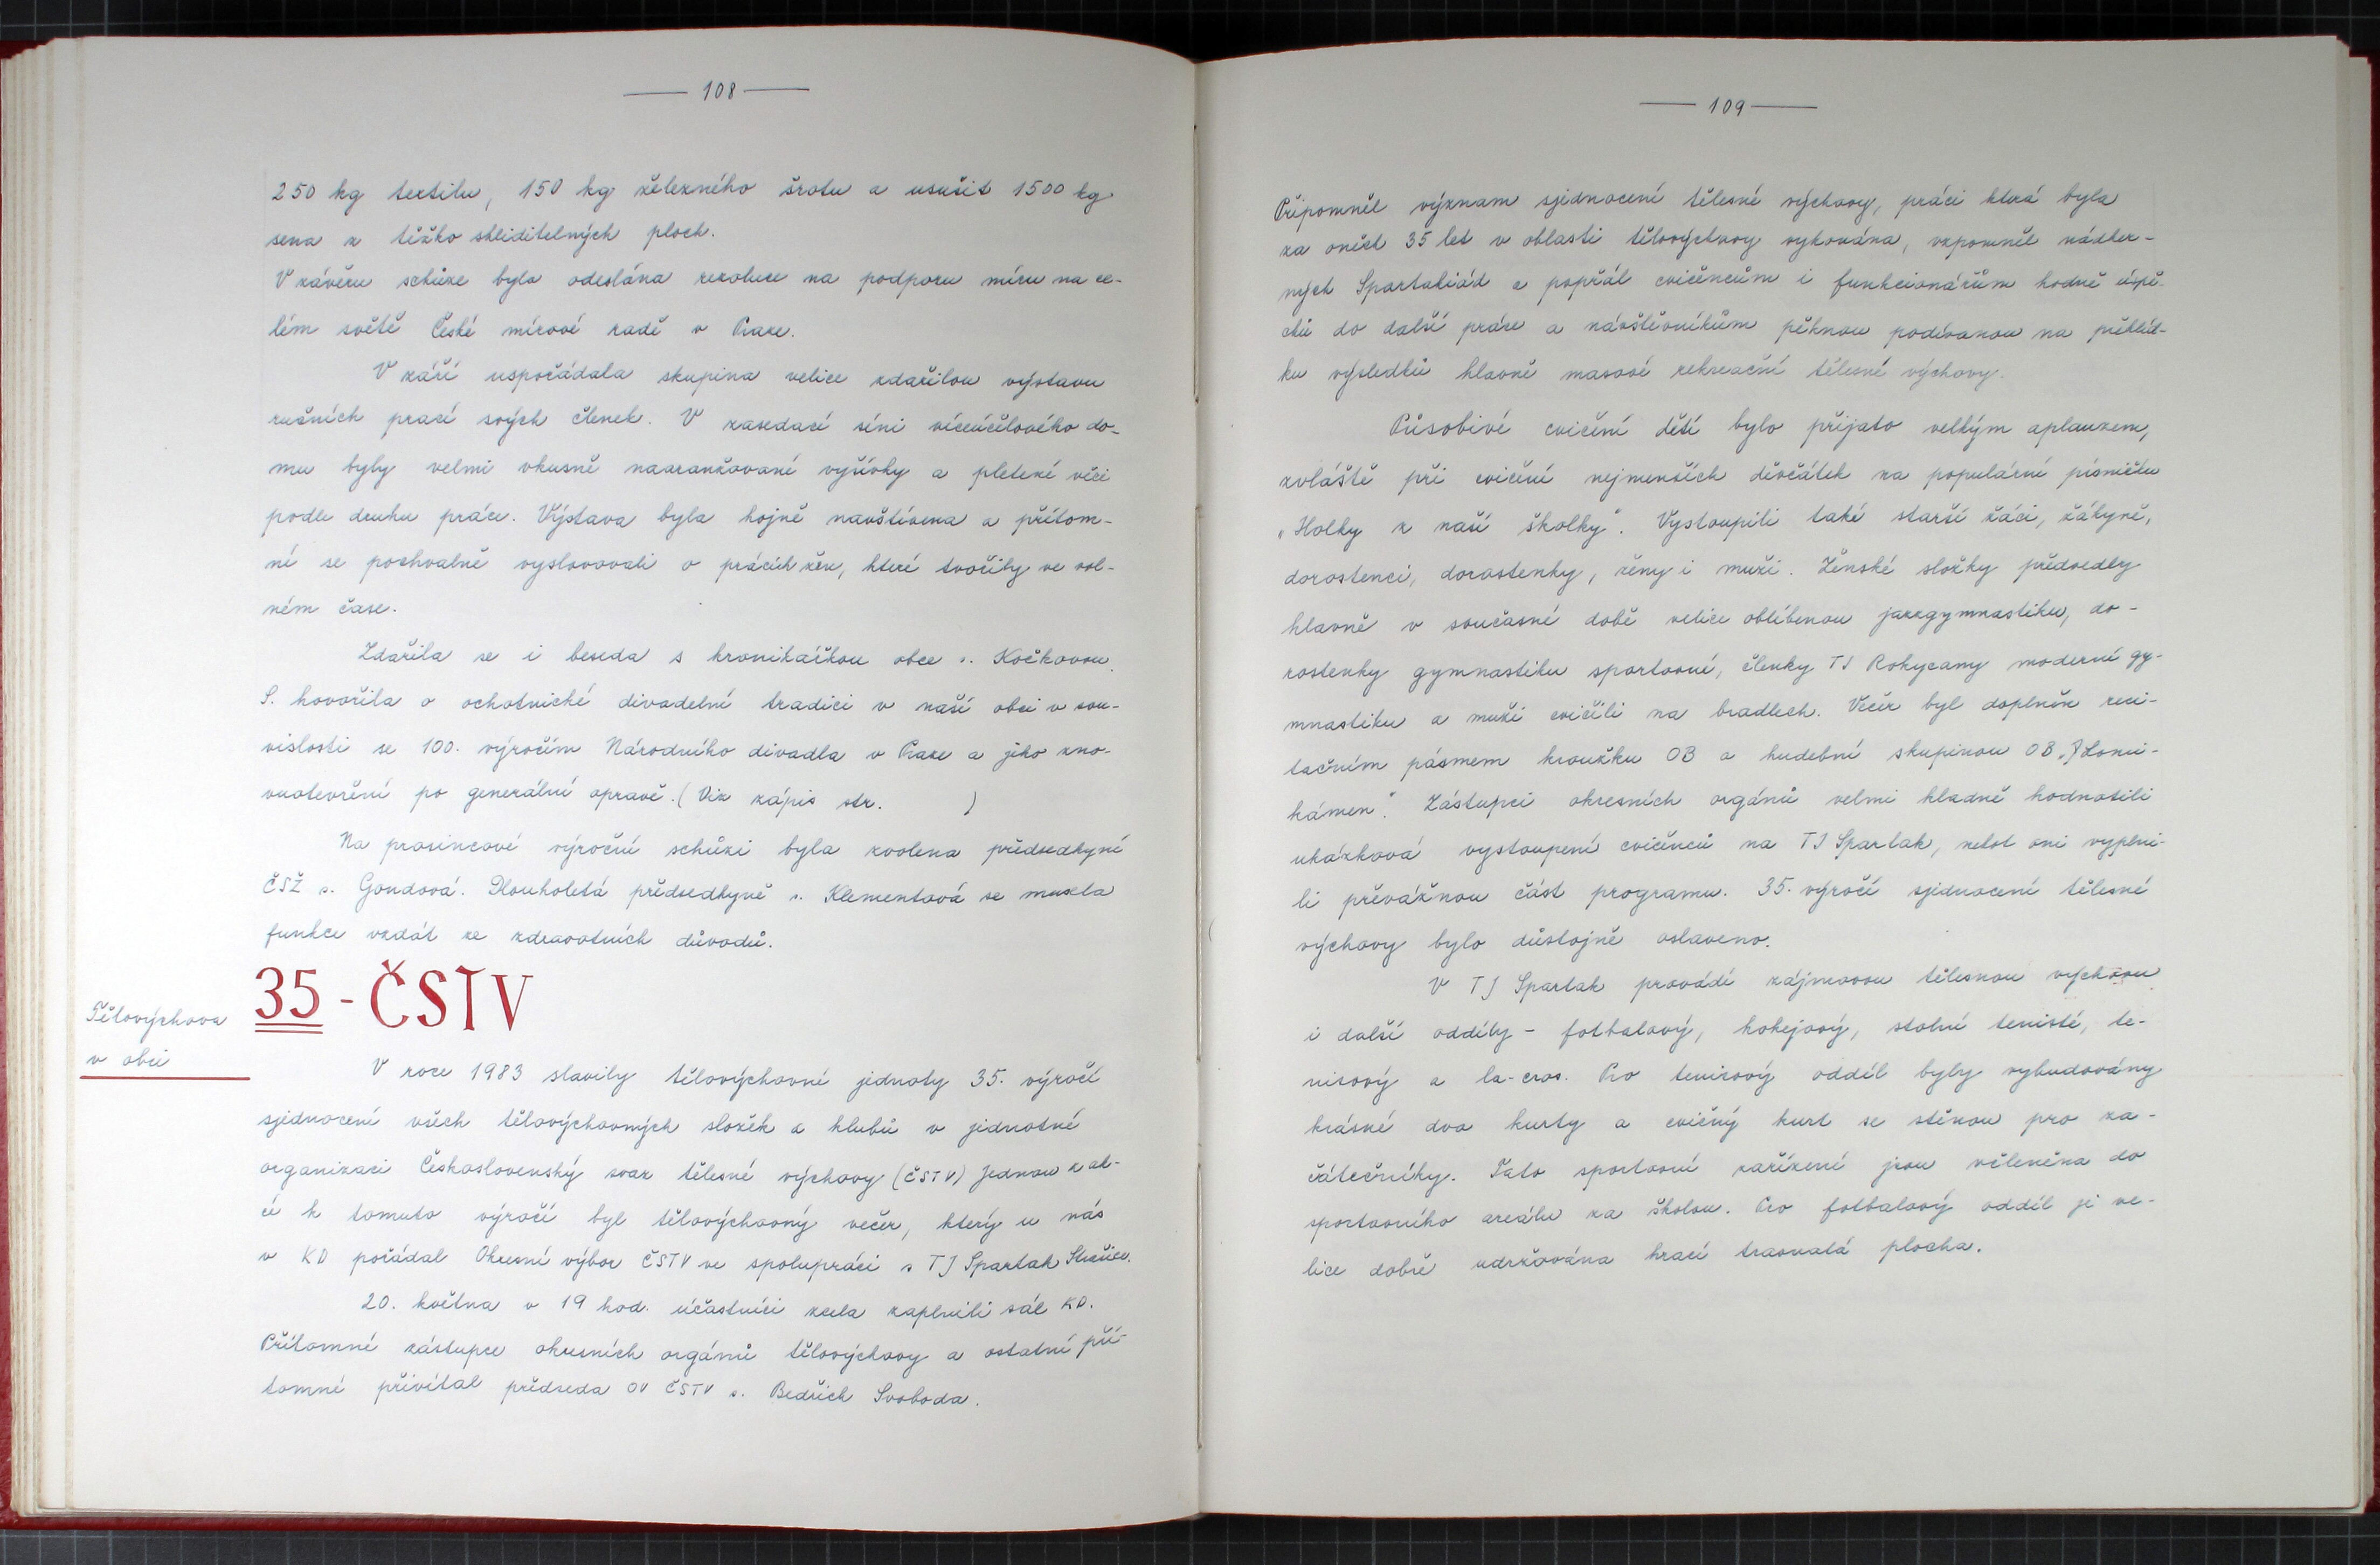 — 108 —
250 kg textilu, 150 kg železného šrotu a usušit 1500 kg
sena z těžko skliditelných ploch.
V závěru schůze byla odeslána rezoluce na podporu míru na ce-
lém světě České mírové radě v Praze.
V září uspořádala skupina velice zdařilou výstavu
ručních prací svých členek. V zasedací síni víceúčelového do-
mu byly velmi vkusně naaranžované vyšívky a pletené věci
podle druhu práce. Výstava byla hojně navštívena a přítom-
ní se pochvalně vyslovovali o pracích žen, které tvořily ve vol-
ném čase.
Zdařila se i beseda s kronikářkou obce s. Kočkovou.
S. hovořila o ochotnické divadelní tradici v naší obci v sou-
vislosti se 100. výročím Národního divadla v Praze a jeho zno-
vuotevření po generální opravě. (Viz zápis str. )
Na prosincové výroční schůzi byla zvolena předsedkyní
ČSŽ s. Gondová. Dlouholetá předsedkyně s. Klementová se musela
funkce vzdát ze zdravotních důvodů.
35 - ČSTV
Tělovýchova
v obci
V roce 1983 slavily tělovýchovné jednoty 35. výročí
sjednocení všech tělovýchovných složek a klubů v jednotné
organizaci Československý svaz tělesné výchovy (ČSTV) Jednou z ak-
cí k tomuto výročí byl tělovýchovný večer, který u nás
v KD pořádal Okresní výbor ČSTV ve spolupráci s TJ Spartak
20. května v 19 hod. účastníci zcela zaplnili sál KD.
Přítomné zástupce okresních orgánů tělovýchovy a ostatní pří-
tomné přivítal předseda OV ČSTV s. Bedřich Svoboda.
— 109 —
Připomněl význam sjednocení tělesné výchovy, práci která byla
za oněch 35 let v oblasti tělovýchovy vykonána, vzpomněl nádher-
ných Spartakiád a popřál cvičencům i funkcionářům hodně úspě-
chů do další práce a návštěvníkům pěknou podívanou na přehlíd-
ku výsledků hlavně masové rekreační tělesné výchovy.
Působivé cvičení dětí bylo přijato velkým aplauzem,
zvláště při cvičení nejmenších děvčátek na populární písničku
„Holky z naší školky". Vystoupili také starší žáci, žákyně,
dorostenci, dorostenky, ženy i muži. Ženské složky předvedly
hlavně v současné době velice oblíbenou jazzgymnastiku, do-
rostenky gymnastiku sportovní, členky TJ Rokycany moderní gy-
mnastiku a muži cvičili na bradlech. Večer byl doplněn reci-
tačním pásmem kroužku OB a hudební skupinou OB „Lomi-
kámen". Zástupci okresních orgánů velmi kladně hodnotili
ukázková vystoupení cvičenců na TJ Spartak, neboť oni vyplni-
li převážnou část programu. 35. výročí sjednocení tělesné
výchovy bylo důstojně oslaveno.
V TJ Spartak provádí zájmovou tělesnou výchovu
i další oddíly - fotbalový, hokejový, stolní tenisté, te-
nisový a la-cros. Pro tenisový oddíl byly vybudovány
krásné dva kurty a cvičný kurt se stěnou pro za-
čátečníky. Tato sportovní zařízení jsou včleněna do
sportovního areálu za školou. Pro fotbalový oddíl je ve-
lice dobře udržována hrací travnatá plocha.